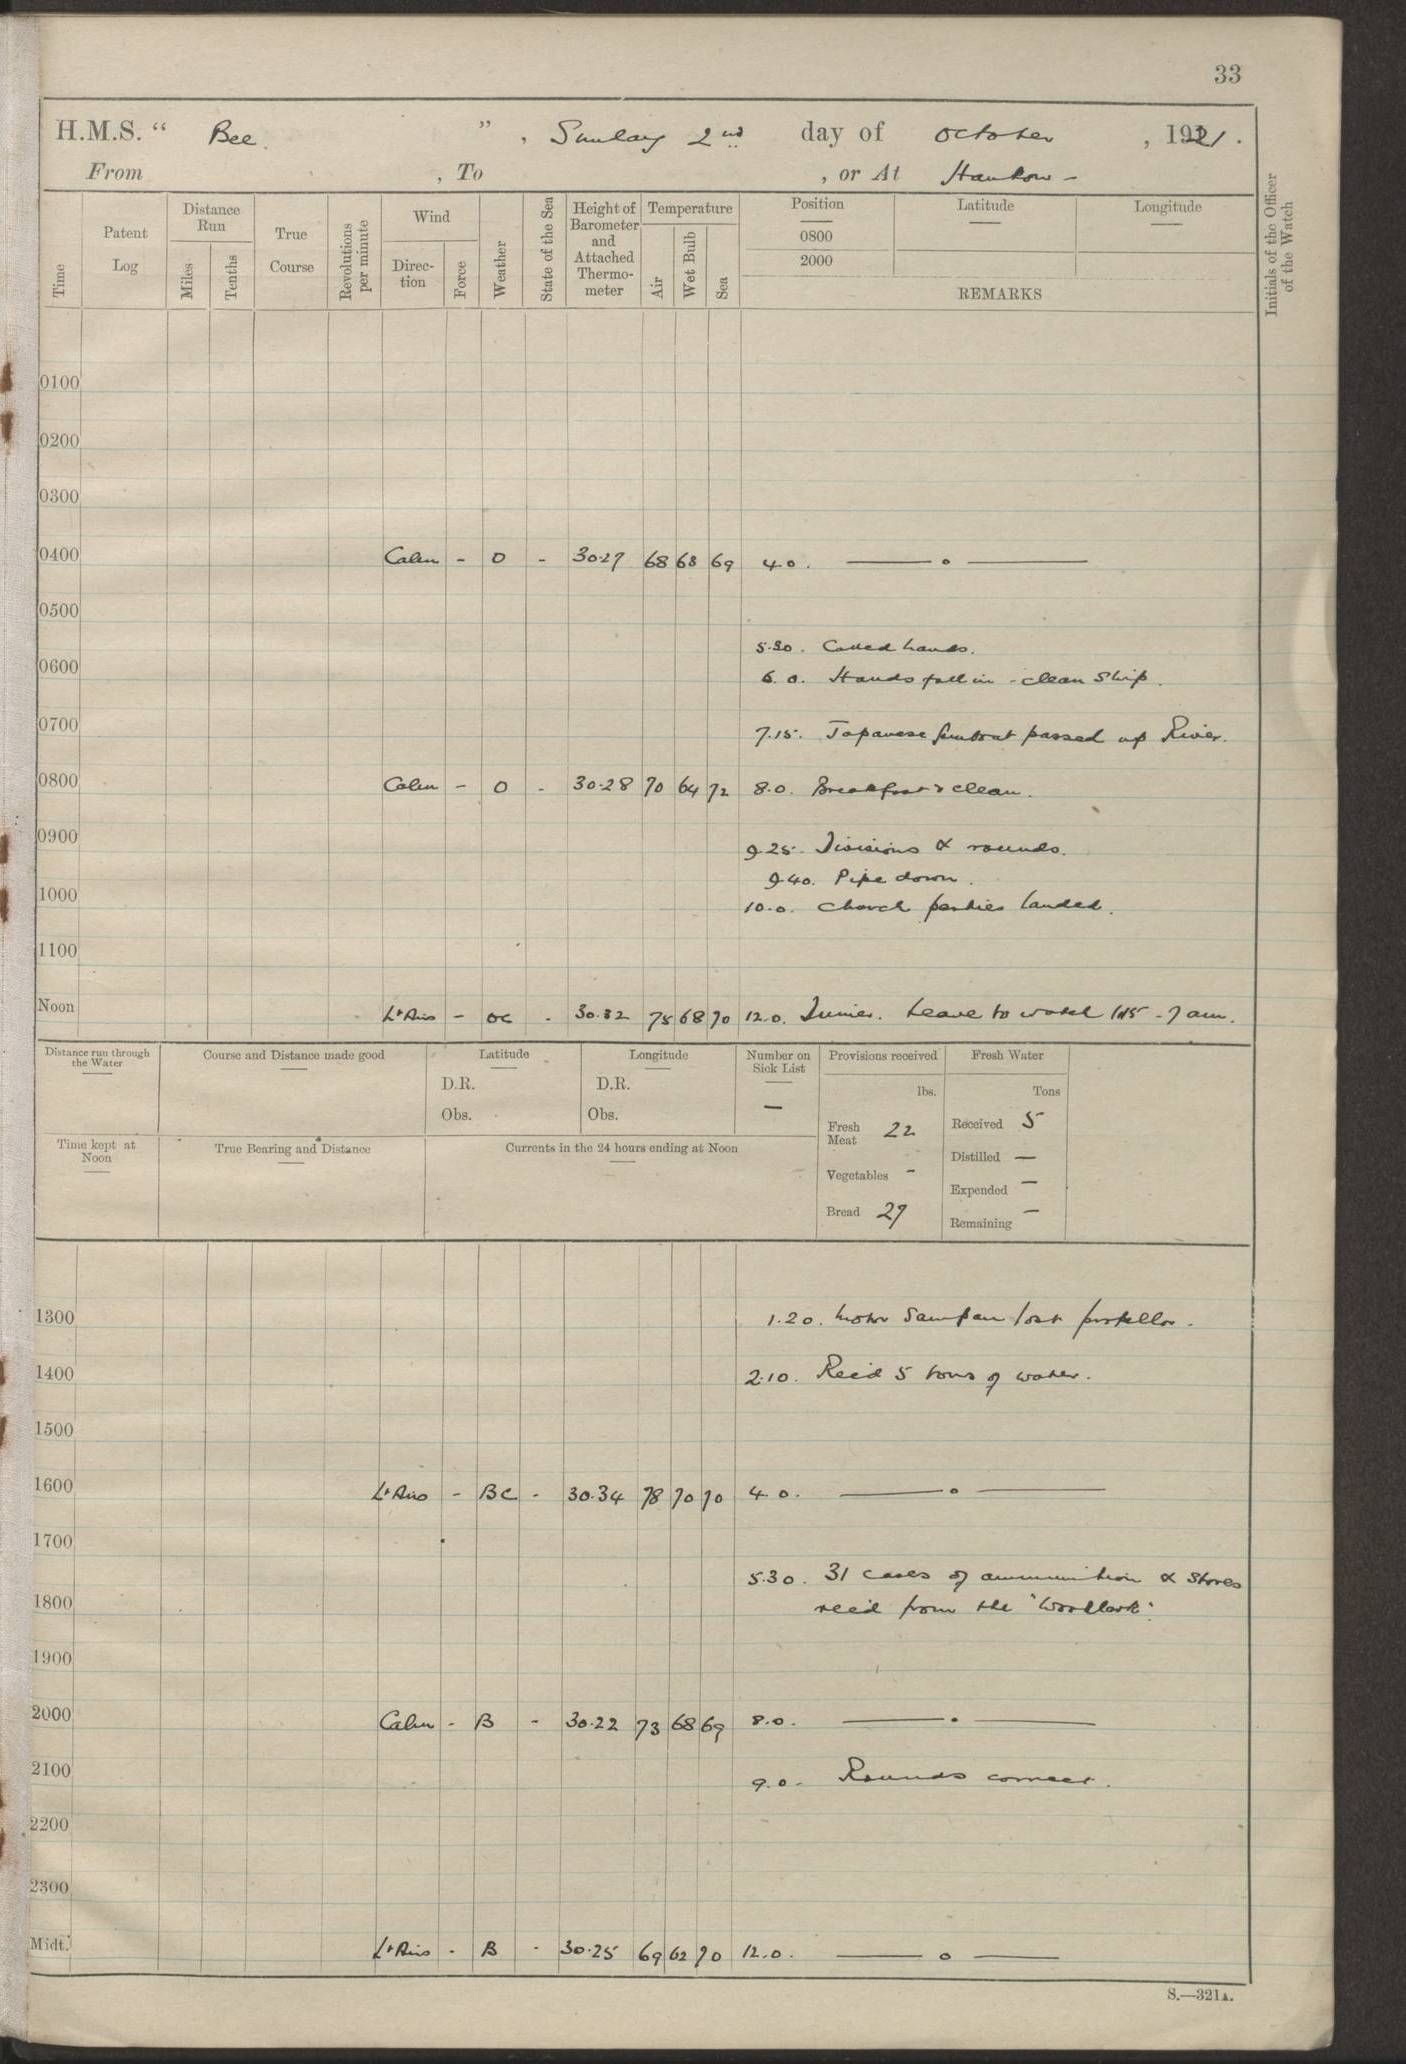 33
H.M.S. “ Bee ” , Sunday 2nd day of October , 1921 .
From , To , or At Hankow -
Time
Patent Log
Distance Run
Miles
Tenths
True Course
Revolutions per minute
Wind
Direc- tion
Force
Weather
State of the Sea
Height of Barometer and Attached Thermo- meter
Temperature
Air
Wet Bulb
Sea
Position
0800
2000
Latitude
Longitude
REMARKS
Initials of the Officer of the Watch
0100
0200
0300
0400 Calm - O - 30.27 68 68 69 4.0. — o —
0500
5.30. Called hands.
0600
6.0. Hands fall in - clean Ship.
0700
7.15. Japanese Gunboat passed up River.
0800 Calm - O - 30.28 70 64 72 8.0. Breakfast & clean.
0900
9.25. Divisions & rounds.
9.40. Pipe down.
1000
10.0. Church parties landed.
1100
Noon Lt Airs - OC - 30.32 75 68 70 12.0. Dinner. Leave to watch 1.15 - 7 am.
Distance run through the Water
Course and Distance made good
Latitude
D.R.
Obs.
Longitude
D.R.
Obs.
Number on Sick List
—
Provisions received
lbs.
Fresh Meat 22
Vegetables -
Bread 27
Fresh Water
Tons
Received 5
Distilled —
Expended —
Remaining —
Time kept at Noon
True Bearing and Distance
Currents in the 24 hours ending at Noon
1300
1.20. Motor Sampan lost propellor.
1400
2.10. Rec'd 5 tons of water.
1500
1600 Lt Airs - BC - 30.34 78 70 70 4.0. — o —
1700
5.30. 31 cases of ammunition & Stores
1800
rec'd from the "Woodlark".
1900
2000 Calm - B - 30.22 73 68 69 8.0. — . —
2100
9.0. Rounds correct.
2200
2300
Midt. Lt Airs - B - 30.25 69 62 70 12.0. — o —
S.—321A.